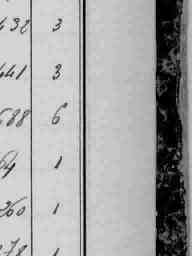 432 3
441 3
688 6
64 1
260 1
278 1